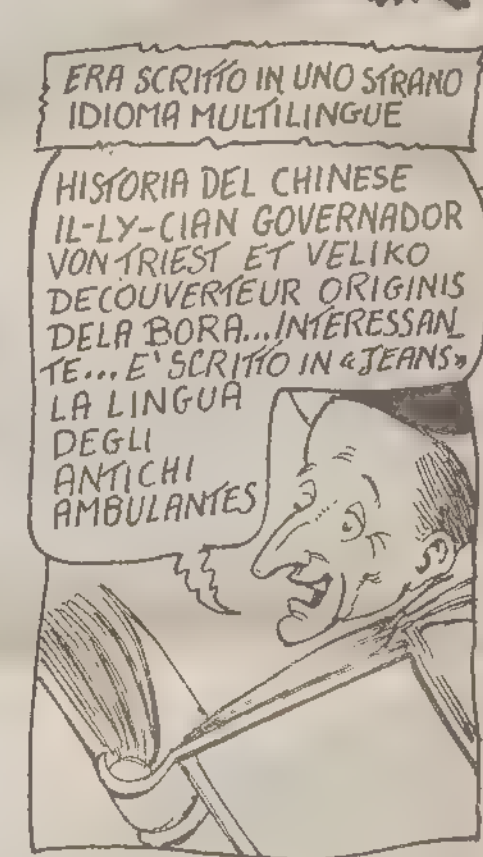 ERA SCRITTO IN UNO STRANO
IDIOMA MULTILINGUE
HISTORIA DEL CHINESE
IL-LY-CIAN GOVERNADOR
VON TRIEST ET VELIKO
DECOUVERTEUR ORIGINIS
DELA BORA...INTERESSAN_
TE... E' SCRITTO IN «JEANS»
LA LINGUA
DEGLI
ANTICHI
AMBULANTES